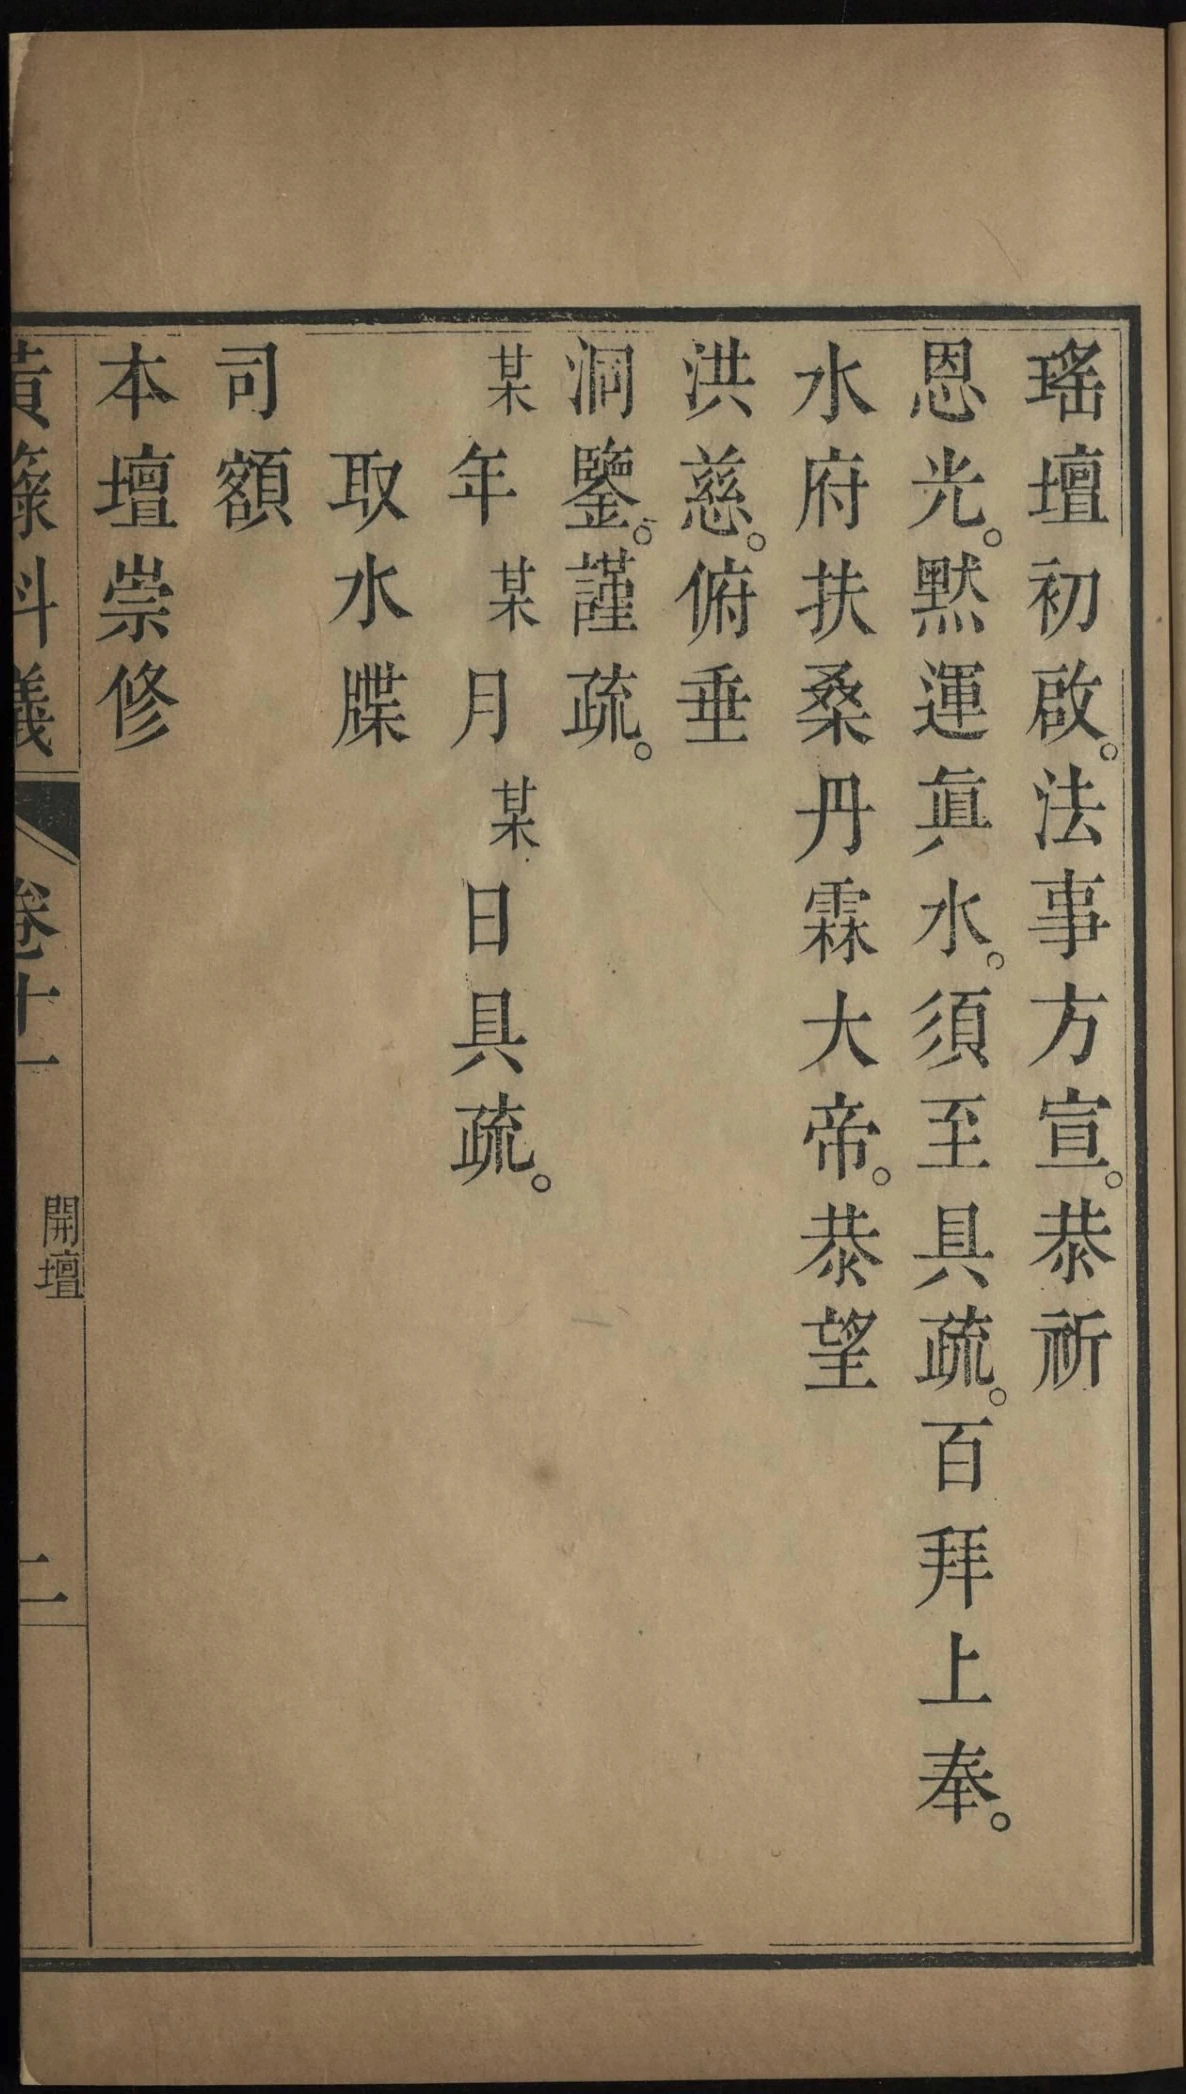 瑤壇初啟。法事方宣。恭祈
恩光。默運眞水。須至具疏。百拜上奉。
水府扶桑丹霖大帝。恭望
洪慈。俯垂
洞鑒。謹疏。
某年某月某日具疏。
取水牒
司額
本壇崇修
黃籙科儀
卷十一
開壇
二